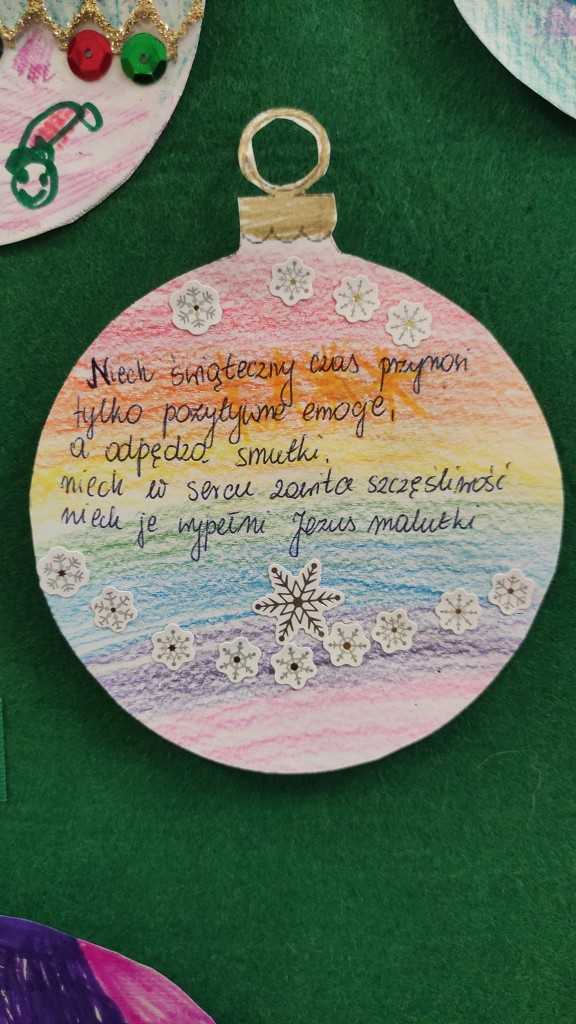 Niech świąteczny czas przynosi
tylko pozytywne emocje,
a odpędza smutki.
niech w sercu zawita szczęśliwość
niech je wypełni Jezus malutki